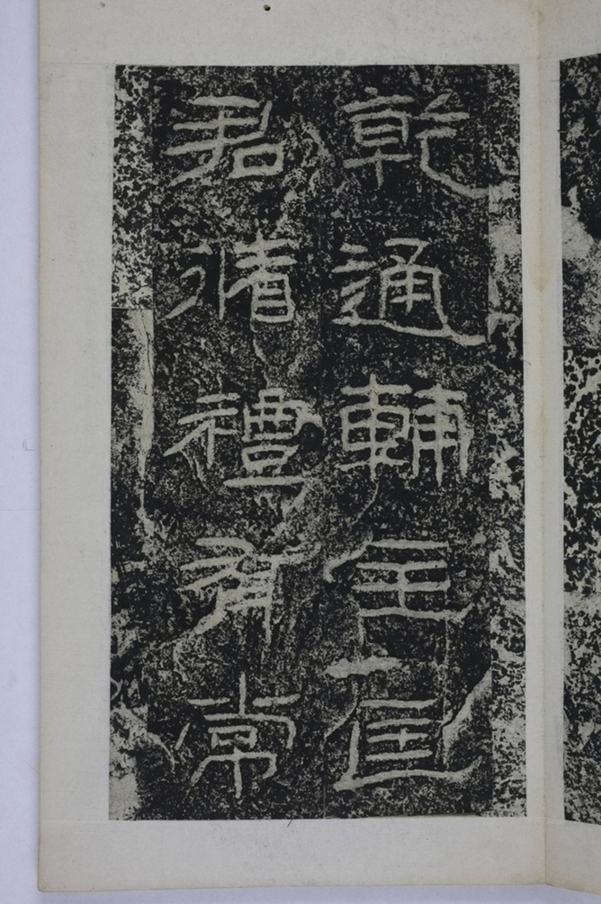 乾通輔主匡
君循禮有常